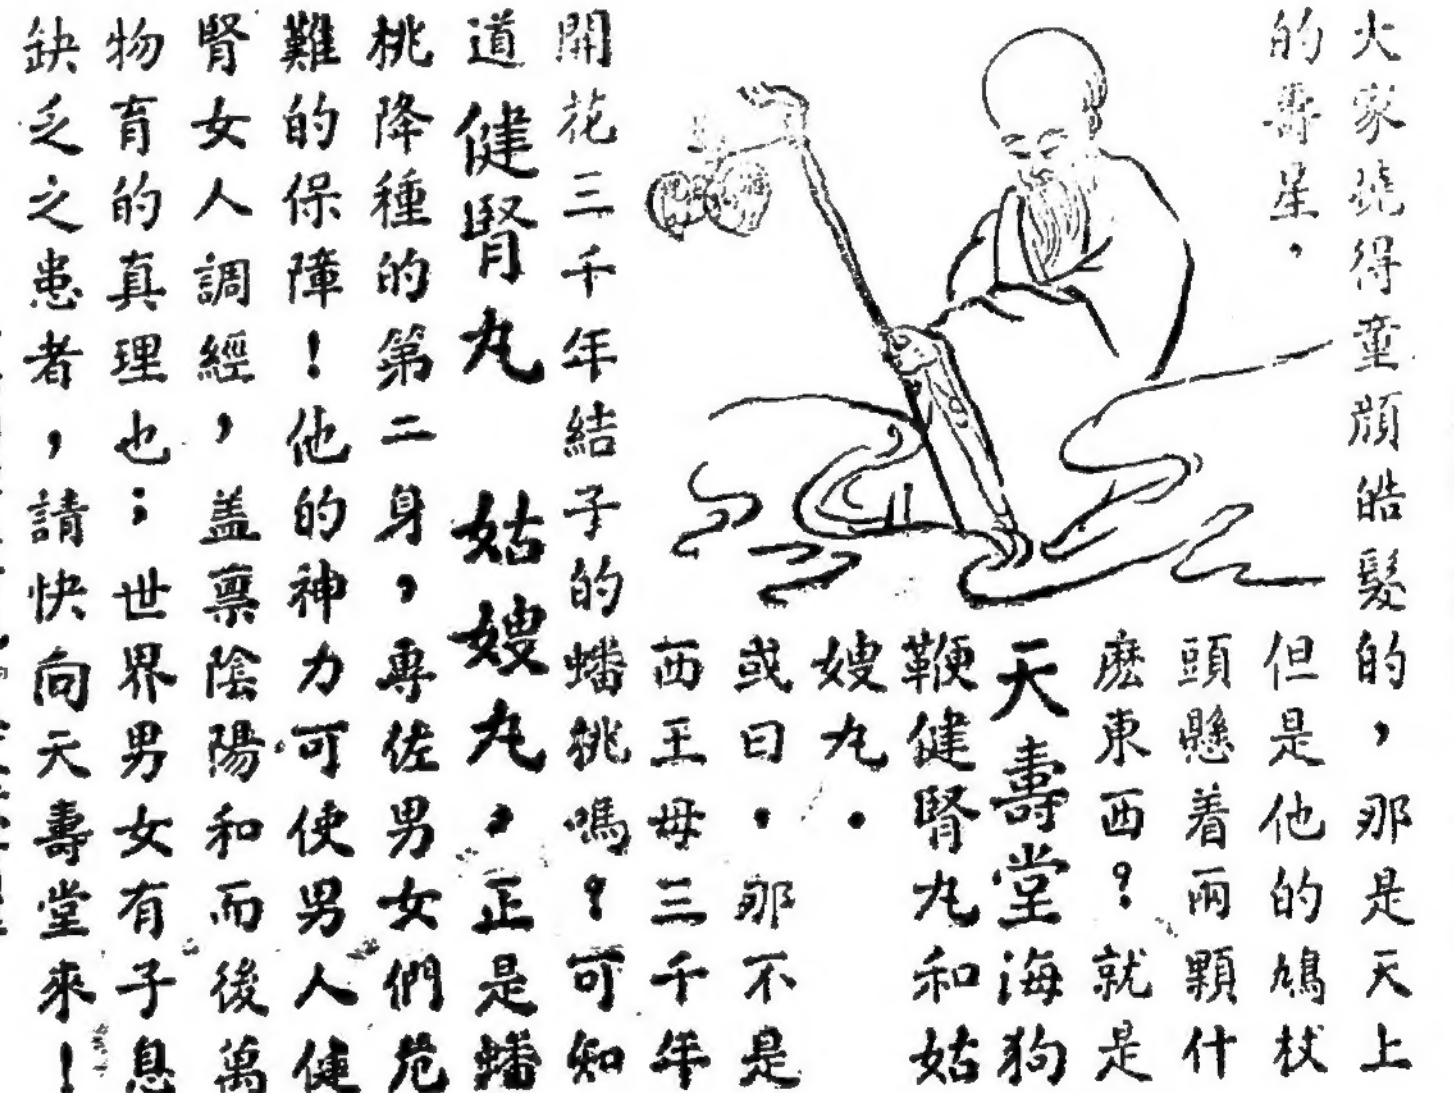 大家曉得童顏皓髮的，那是天上
的壽星，
但是他的鳩杖
頭懸着兩顆什
麽東西？就是
天壽堂海狗
鞭健腎丸和姑
嫂丸．
或曰．那不是
西王母三千年
開花三千年結子的蟠桃嗎？可知
道健腎丸　姑嫂丸，正是蟠
桃降種的第二身，專佐男女們危
難的保障！他的神力可使男人健
腎女人調經，盖禀陰陽和而後萬
物育的真理也；世界男女有子息
缺乏之患者，請快向天壽堂來！